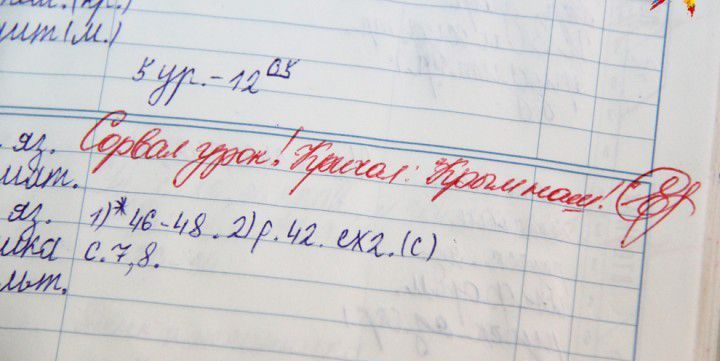 5 ур. - 12 05
. яз. Сорвал урок! Кричал: "Крым наш!
мат.
яз. 1) *46-48. 2) р. 42. сх2. (с)
ика с. 7, 8.
льт.